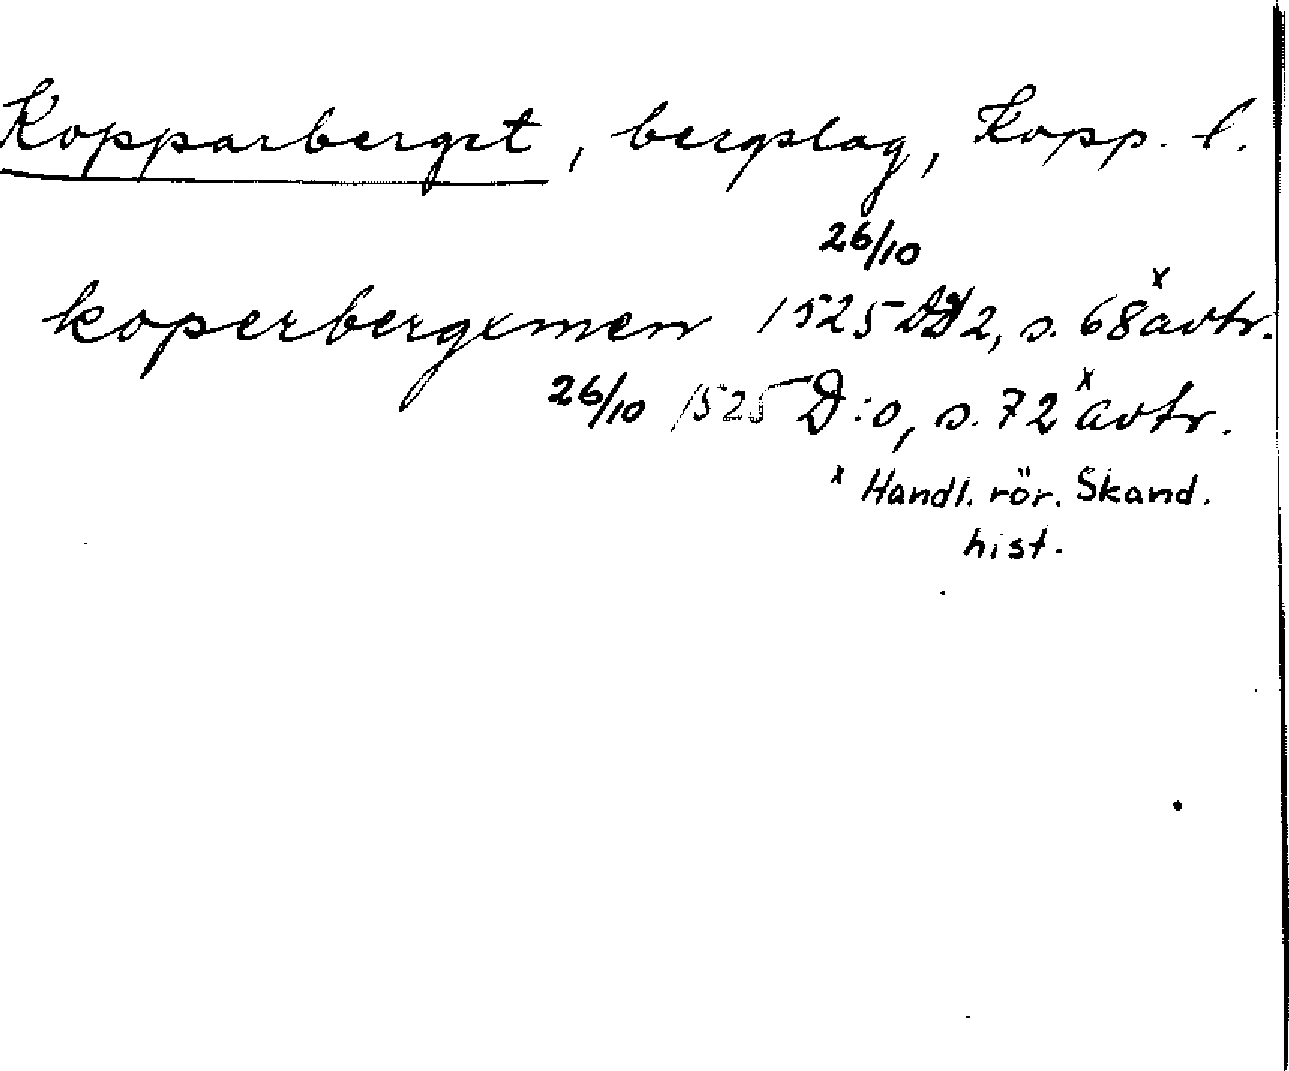 Kopparberget, bergslag, Kopp. l.
26/10
koperbergxmen 1525 DD 2, s. 68ˣ avtr.
26/10 1525 D:o, s. 72ˣ avtr.
ˣ Handl. rör. Skand.
hist.